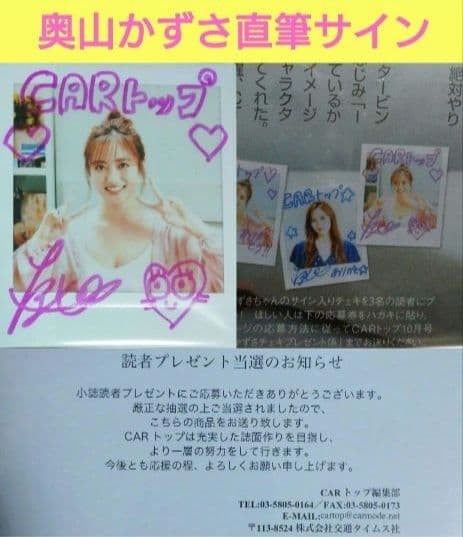 奥山かずさ直筆サイン
CARトップ
絶対やり
タービン
じみ「ー
ているか
イメージ
ャラクタ
てくれた。
CARトップ
CARトップ☆
ありがとう☆
ずさちゃんのサイン入りチェキを3名の読者にプ
！ ほしい人は下の応募券をハガキに貼り、
ージの応募方法に従ってCARトップ10月号
読者プレゼント当選のお知らせ
小誌読者プレゼントにご応募いただきありがとうございます。
厳正な抽選の上ご当選されましたので、
こちらの商品をお送り致します。
CAR トップは充実した誌面作りを目指し、
より一層の努力をして行きます。
今後とも応援の程、よろしくお願い申し上げます。
CAR トップ編集部
TEL:03-5805-0164／FAX:03-5805-0173
E-MAIL:cartop@carmode.net
〒113-8524 株式会社交通タイムス社